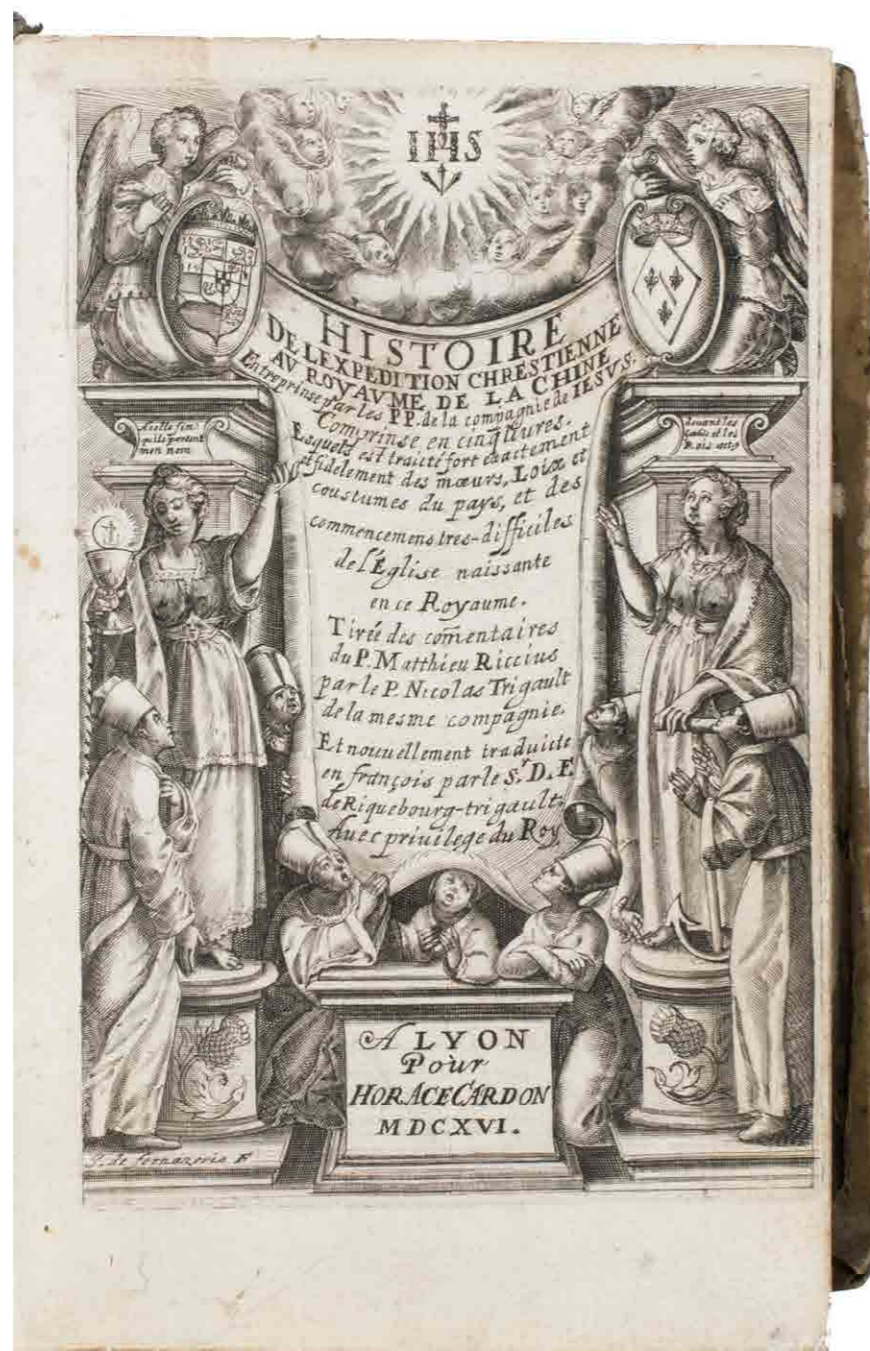 IHS
HISTOIRE
DE L'EXPEDITION CHRESTIENNE
AV ROYAVME DE LA CHINE
Entreprinse par les PP. de la compagnie de IESVS.
Comprinse en cinq liures.
Esquels est traicté fort exactement
et fidelement des mœurs, Loix et
coustumes du pays, et des
commencemens tres-difficiles
de l'Église naissante
en ce Royaume.
Tirée des com̃entaires
du P. Matthieu Riccius
par le P. Nicolas Trigault
de la mesme compagnie.
Et nouuellement traduicte
en françois par le Sʳ. D. F.
de Riquebourg-trigault.
Auec priuilege du Roy
A celle fin
qu'ils portent
mon nom
deuant les
Gentils et les
Rois act 9
A LYON
Pour
HORACE CARDON
MDCXVI.